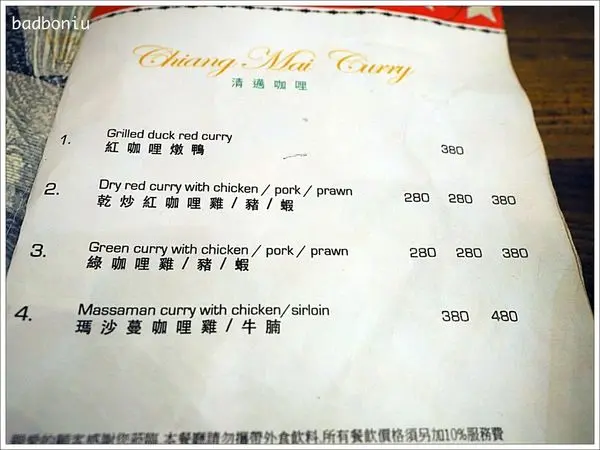 badboniu
Chiang Mai Curry
清邁咖哩
1. Grilled duck red curry 380
紅咖哩燉鴨
2. Dry red curry with chicken / pork / prawn 280 280 380
乾炒紅咖哩雞/豬/蝦
3. Green curry with chicken / pork / prawn 280 280 380
綠咖哩雞/豬/蝦
4. Massaman curry with chicken/sirloin 380 480
瑪沙蔓咖哩雞/牛腩
親愛的顧客感謝您蒞臨,本餐廳請勿攜帶外食飲料,所有餐飲價格須另加10%服務費